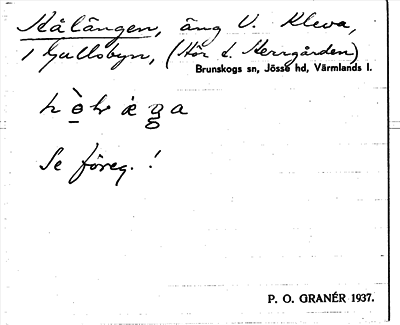 Hålängen, äng V. Kleva,
1 Gullsbyn, (Hör t. Herrgården)
Brunskogs sn, Jösse hd, Värmlands l.
Se föreg. !
P. O. GRANÉR 1937.